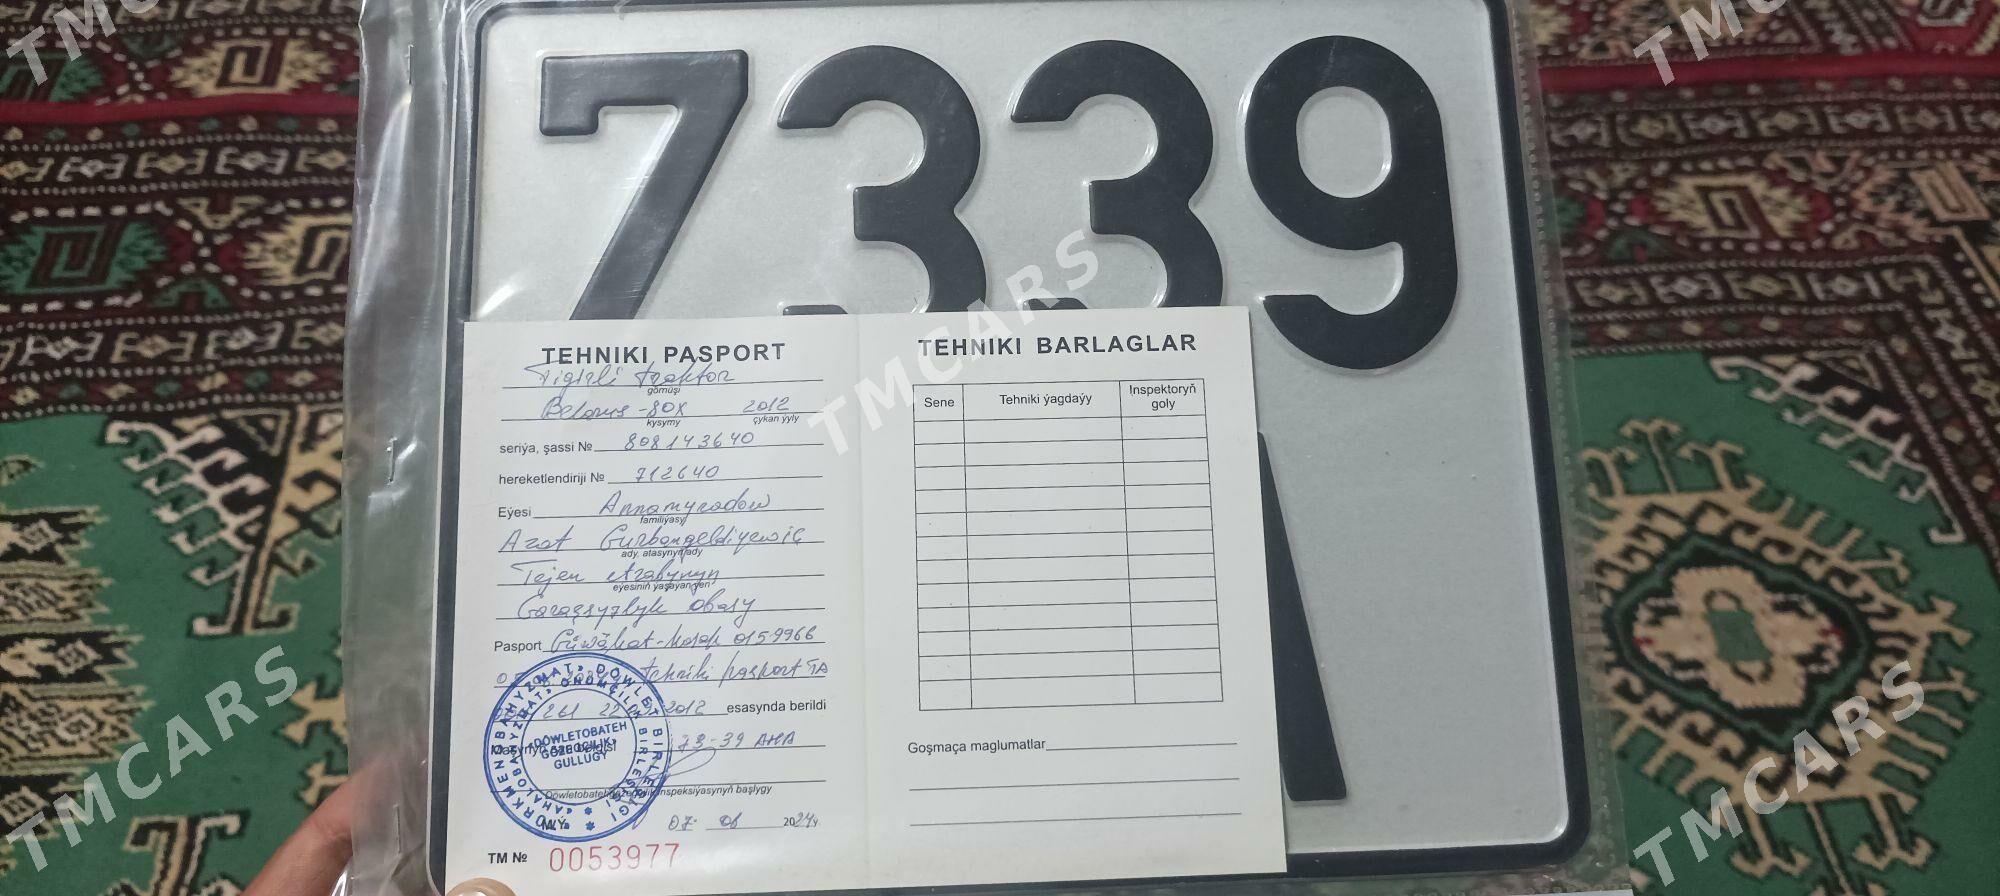 7339
TEHNIKI PASPORT
Tigirli traktor
görnüşi
Belarus-80X 2012
kysymy çykan ýyly
seriýa, şassi № 808143640
hereketlendiriji № 712640
Eýesi Annamyradow
familiýasy
Azat Gurbangeldiýewiç
ady, atasynyň ady
Tejen etrabynyň
eýesiniň ýaşaýan ýeri
Garaşsyzlyk obasy
Pasport Güwähat-Hasap 0159966
tehniki pasport TA
261 22 2012 esasynda berildi
73-39 AHA
Döwletobatehgözegçilik inspeksiýasynyň başlygy
M.Ý.
07. 08 2024ý.
TM № 0053977
DÖWLETOBATEH
GÖZEGÇILIK
GULLUGY
TEHNIKI BARLAGLAR
Sene Tehniki ýagdaýy Inspektoryň goly
Goşmaça maglumatlar
TMCARS
TMCARS
TMCARS
TMCARS
TMCARS